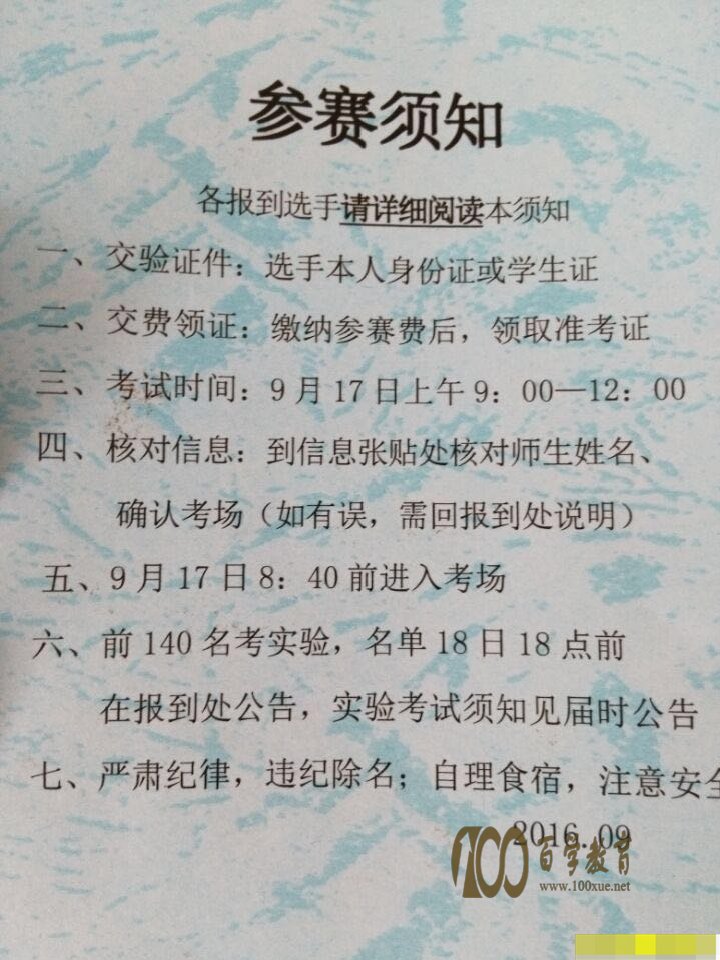 参赛须知
各报到选手请详细阅读本须知
一、交验证件：选手本人身份证或学生证
二、交费领证：缴纳参赛费后，领取准考证
三、考试时间：9月17日上午9：00—12：00
四、核对信息：到信息张贴处核对师生姓名、
确认考场（如有误，需回报到处说明）
五、9月17日8：40前进入考场
六、前140名考实验，名单18日18点前
在报到处公告，实验考试须知见届时公告
七、严肃纪律，违纪除名；自理食宿，注意安全
2016.09
100百学教育
www.100xue.net